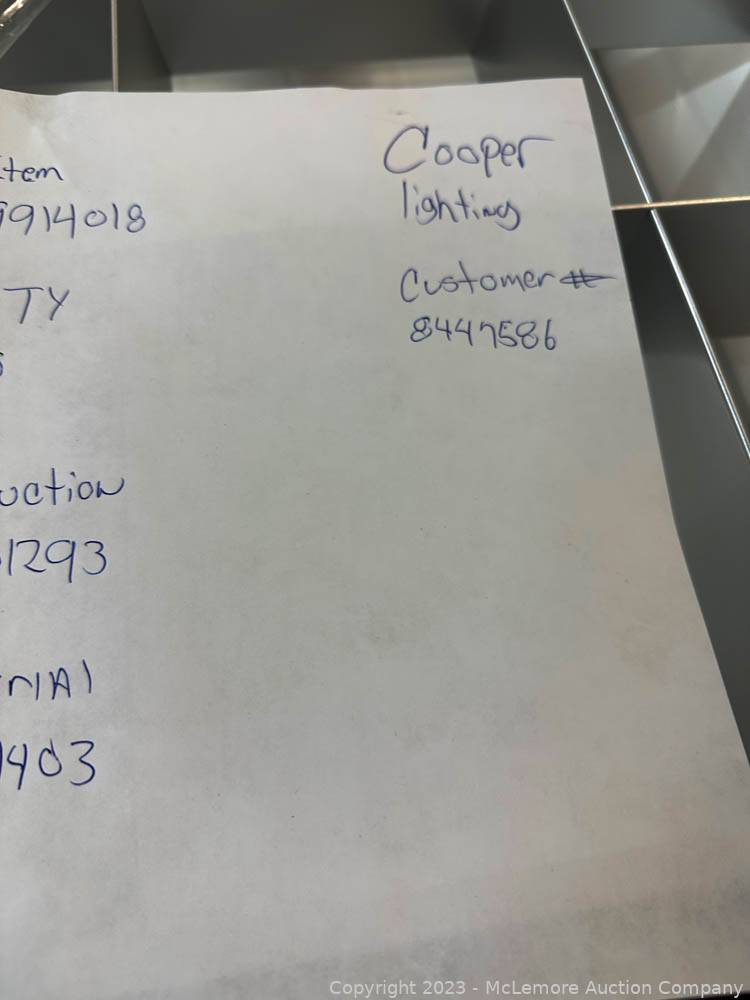 Cooper
lighting
Customer #
8447586
Item
9914018
TY
uction
1293
rIAl
1403
Copyright 2023 - McLemore Auction Company